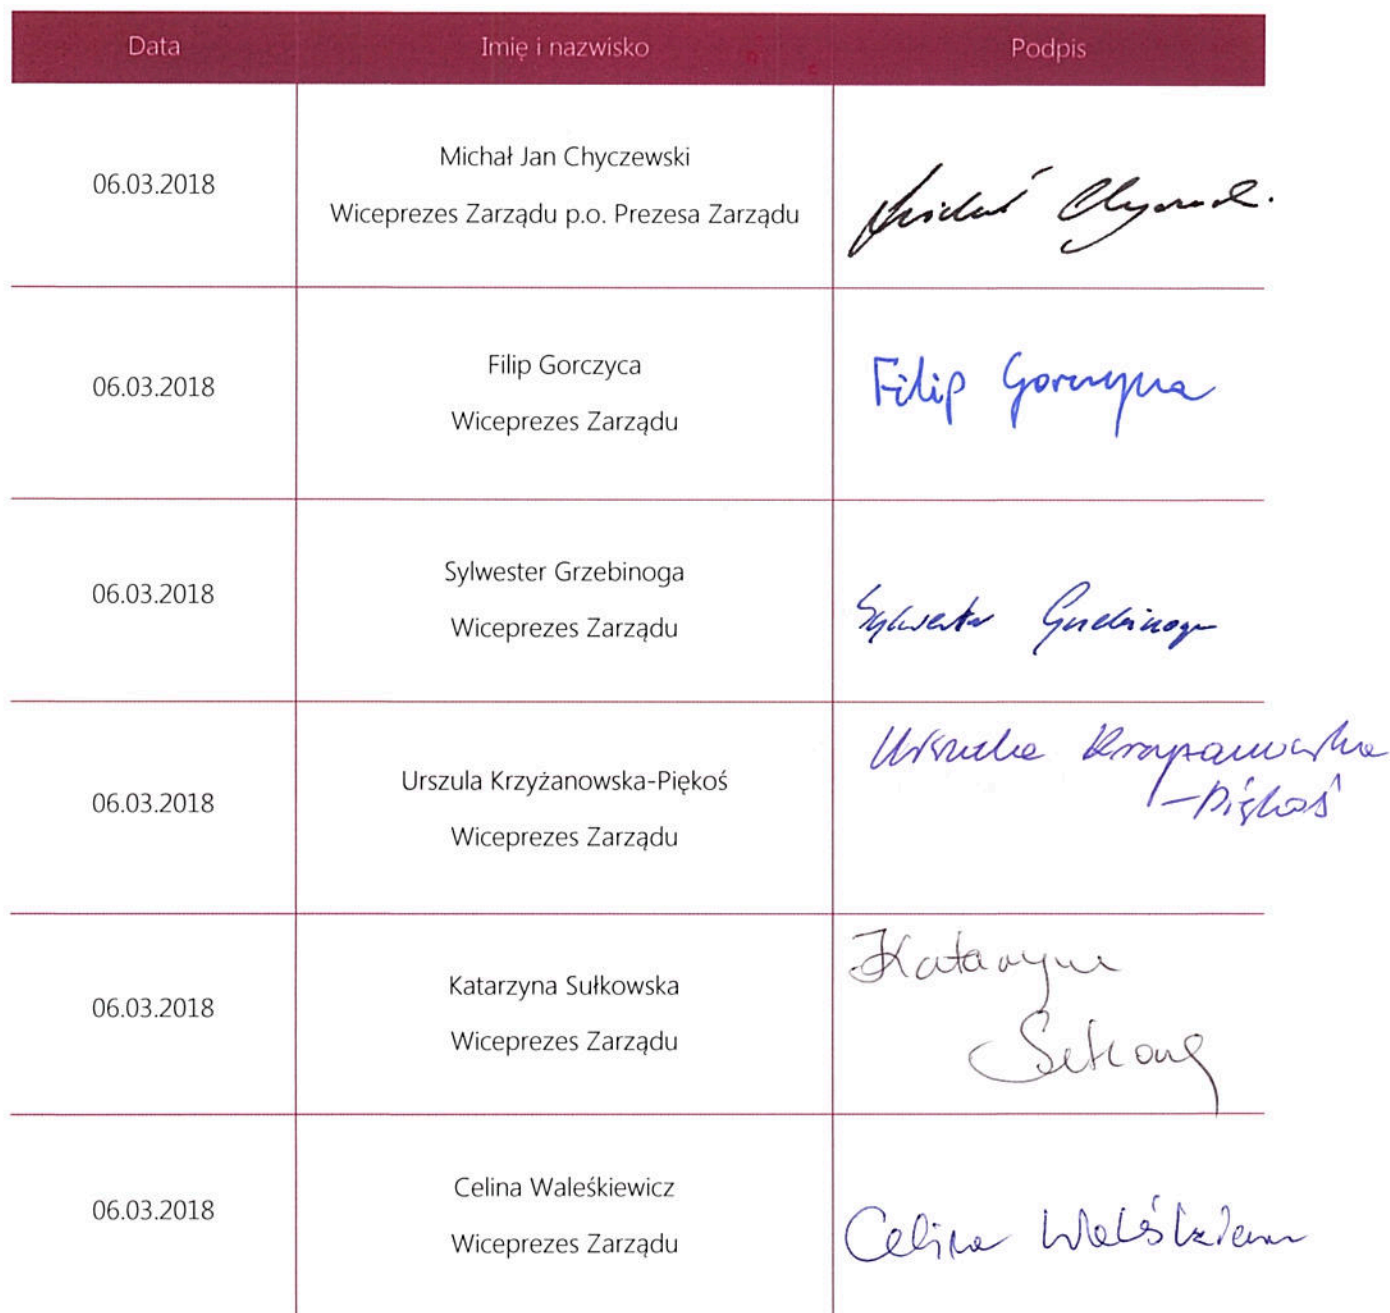 Data Imię i nazwisko Podpis
06.03.2018
Michał Jan Chyczewski
Wiceprezes Zarządu p.o. Prezesa Zarządu
06.03.2018
Filip Gorczyca
Wiceprezes Zarządu
Filip Gorczyca
06.03.2018
Sylwester Grzebinoga
Wiceprezes Zarządu
Sylwester Grzebinoga
06.03.2018
Urszula Krzyżanowska-Piękoś
Wiceprezes Zarządu
Urszula Krzyżanowska
-Piękoś
06.03.2018
Katarzyna Sułkowska
Wiceprezes Zarządu
Katarzyna
06.03.2018
Celina Waleśkiewicz
Wiceprezes Zarządu
Celina